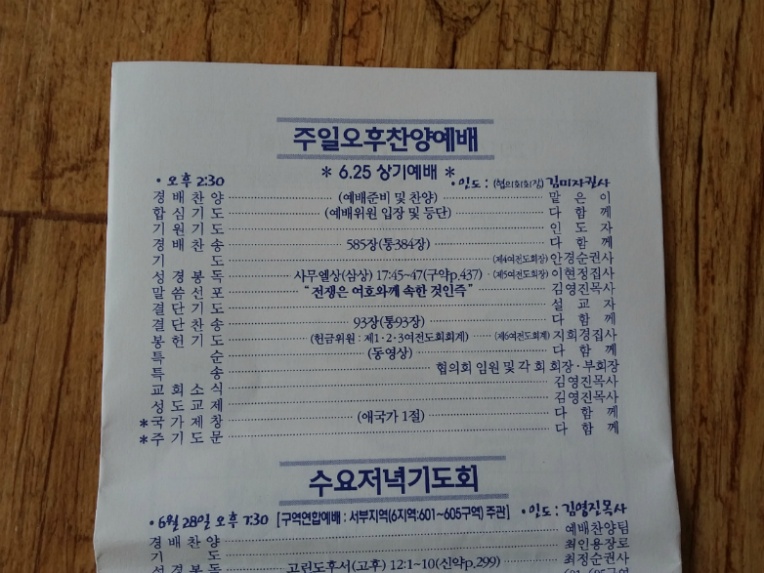 주일오후찬양예배
* 6.25 상기예배 *
• 오후 2:30 • 인도 : (협의회회장) 김미자권사
경배찬양 (예배준비 및 찬양) 맡은이
합심기도 (예배위원 입장 및 등단) 다함께
기원기도 인도자
경배찬송 585장(통384장) 다함께
기도 (제4여전도회장) 안경순권사
성경봉독 사무엘상(삼상) 17:45~47(구약p.437) (제5여전도회장) 이현정집사
말씀선포 “전쟁은 여호와께 속한 것인즉” 김영진목사
결단기도 설교자
결단찬송 93장(통93장) 다함께
봉헌기도 (헌금위원 : 제1·2·3여전도회회계) (제6여전도회계) 지희경집사
특순 (동영상) 다함께
특송 협의회 임원 및 각 회 회장·부회장
교회소식 김영진목사
성도교제 김영진목사
*국가제창 (애국가 1절) 다함께
*주기도문 다함께
수요저녁기도회
• 6월 28일 오후 7:30 [구역연합예배 : 서부지역(6지역:601~605구역) 주관] • 인도 : 김영진목사
경배찬양 예배찬양팀
기도 최인용장로
성경봉독 고린도후서(고후) 12:1~10(신약p.299) 최정순권사